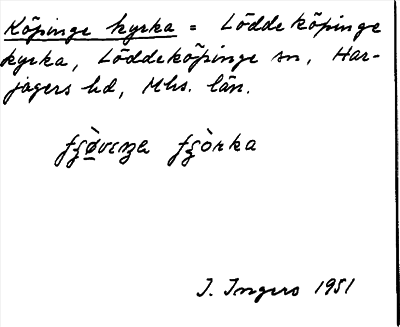 Köpinge kyrka = Löddeköpinge
kyrka, Löddeköpinge sn, Har-
jagers hd, Mhs. län.
J. Ingers 1951